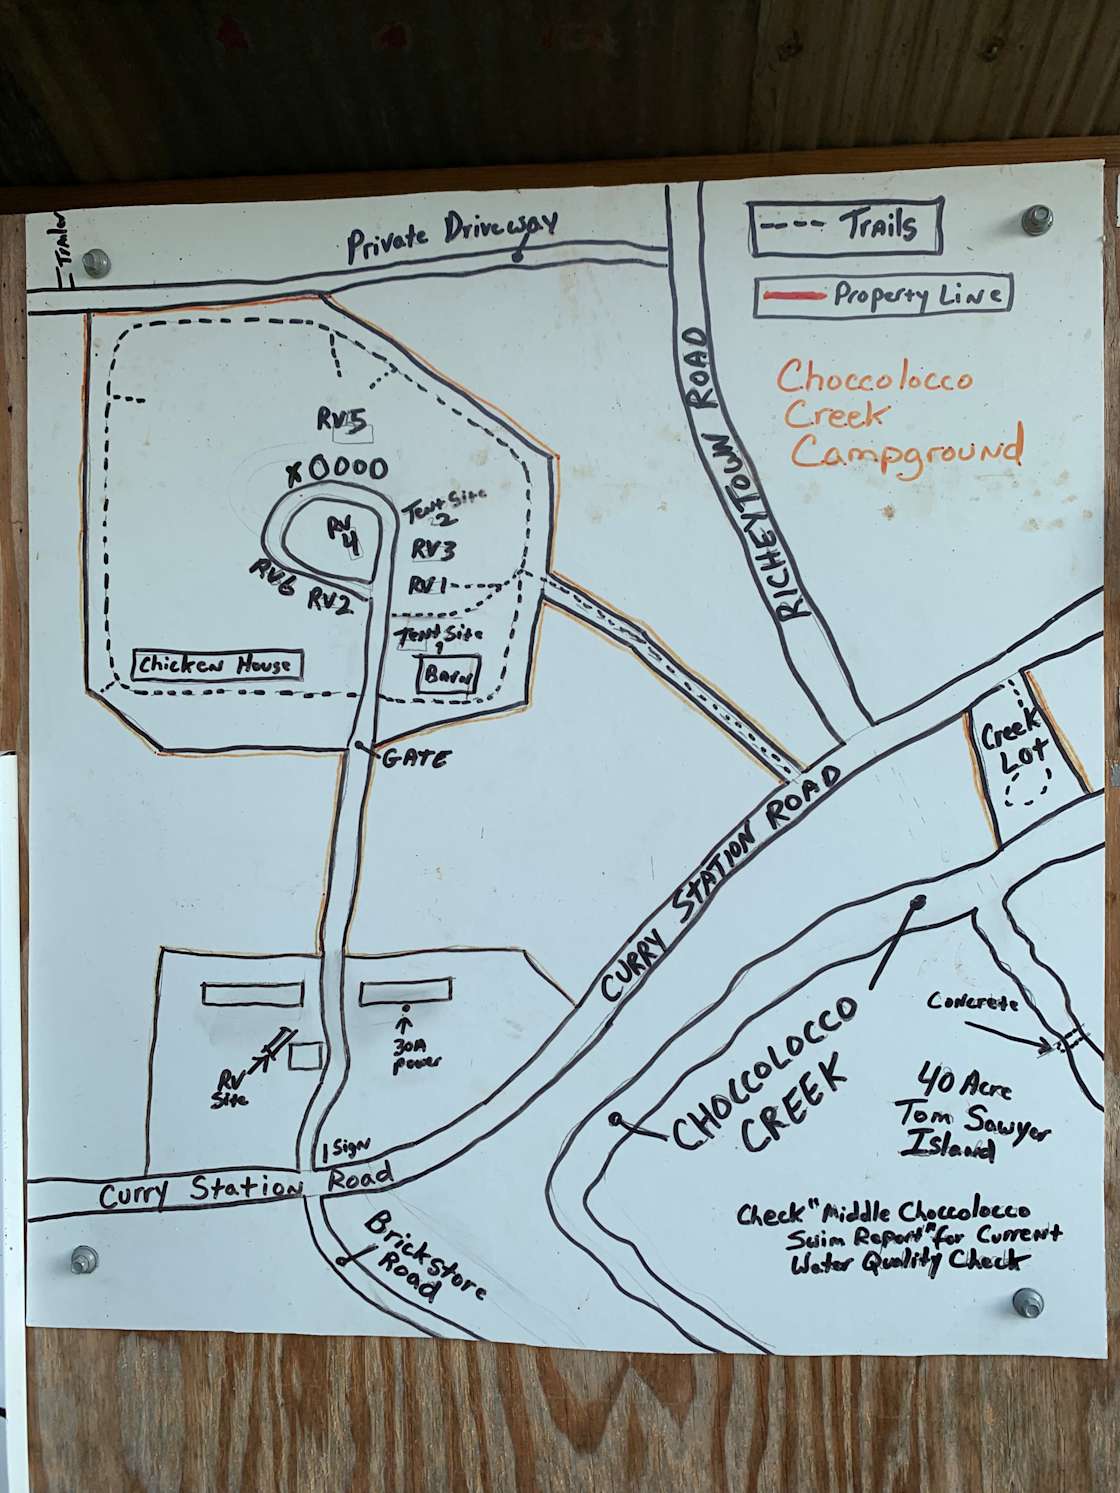 Trailer
Private Driveway
Trails
Property Line
Choccolocco
Creek
Campground
RICHEYTOWN ROAD
RV5
XOOOO
Tent Site
2
RV
4
RV3
RV6
RV2
RV1
Tent Site
1
Chicken House
Barn
GATE
Creek
Lot
CURRY STATION ROAD
Concrete
CHOCCOLOCCO
CREEK
30A
Power
RV
Site
40 Acre
Tom Sawyer
Island
Sign
Curry Station Road
Brickstore
Road
Check "Middle Choccolocco
Swim Report" for Current
Water Quality Check